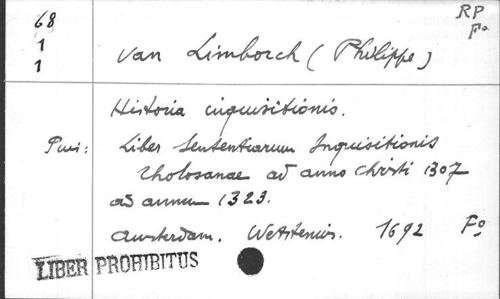 68
1
1
RP
Fo
van Limborch (Philippe)
Historia inquisitionis.
Puis: Liber Sententiarum Inquisitionis
Tholosanae ad anno Christi 1307
ad annum 1323.
Amsterdam. Wetstenius. 1692 Fo
LIBER PROHIBITUS